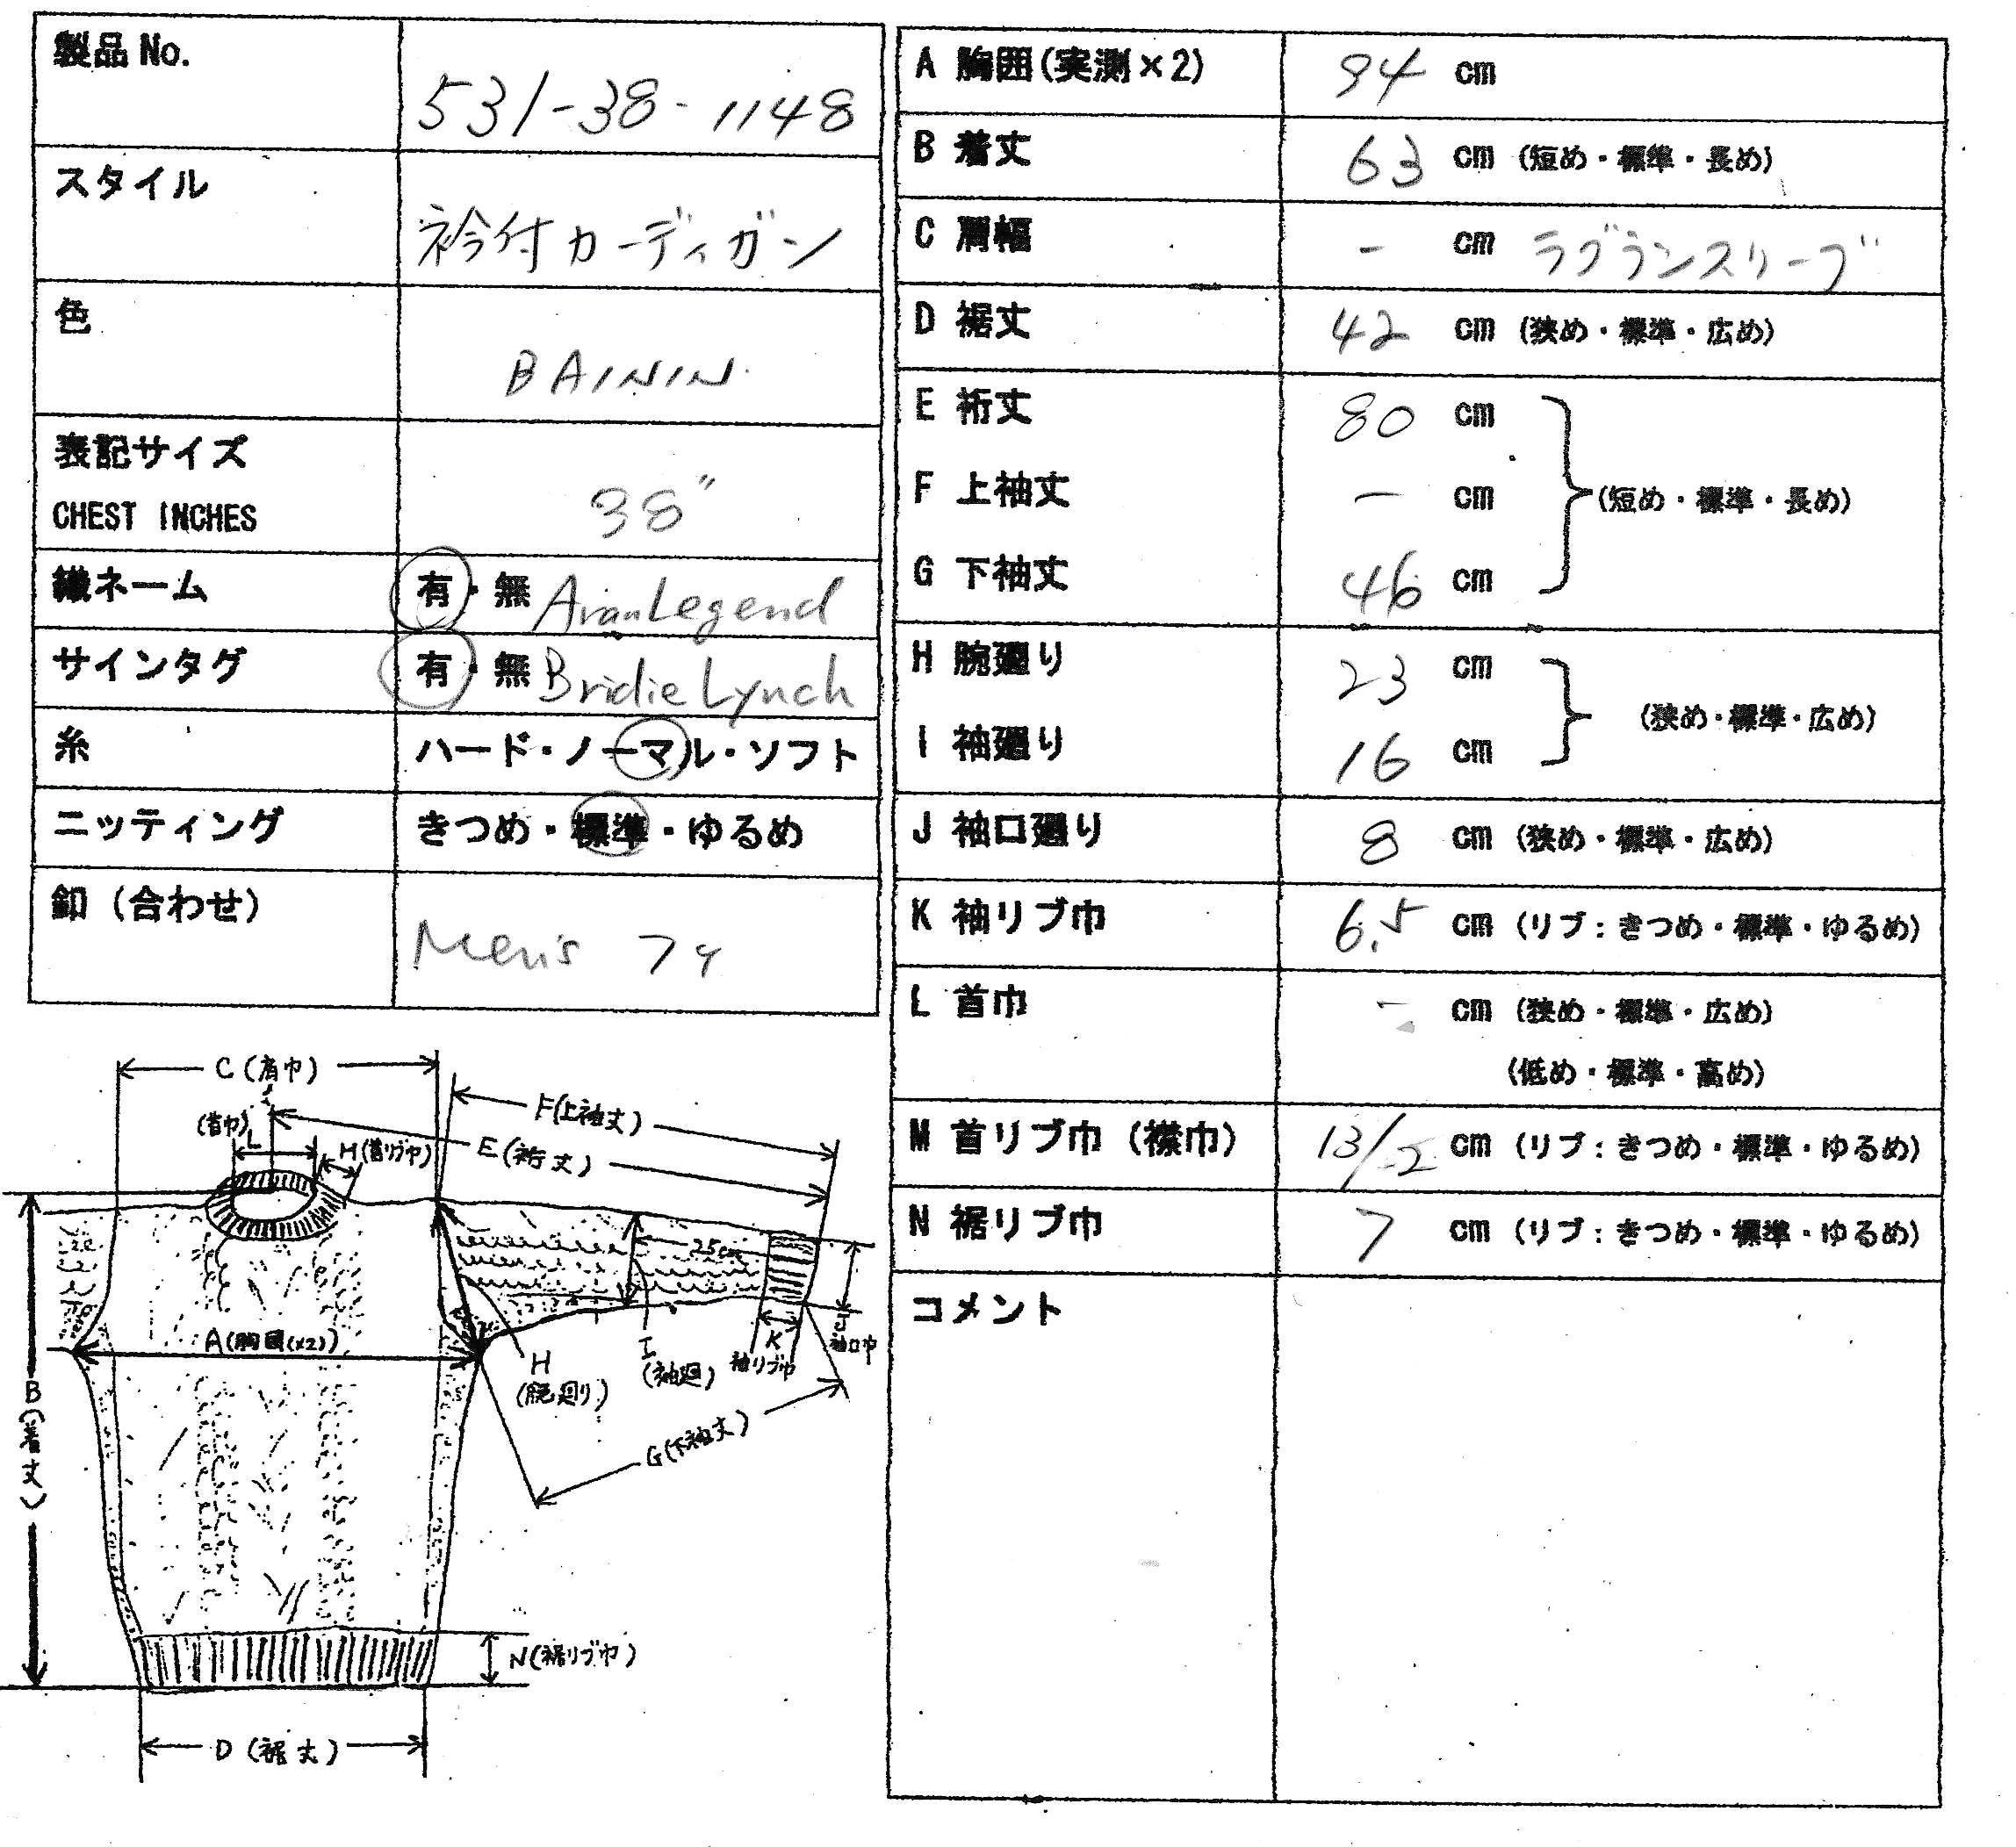 製品 No.
531-38-1148
スタイル
衿付カーディガン
色
BAININ
表記サイズ
CHEST INCHES
38"
織ネーム
有・無 AranLegend
サインタグ
有・無 Bridie Lynch
糸
ハード・ノーマル・ソフト
ニッティング
きつめ・標準・ゆるめ
釦（合わせ）
Men's 7ケ
A 胸囲(実測×2)
94 cm
B 着丈
63 cm (短め・標準・長め)
C 肩幅
- cm ラグランスリーブ
D 裾丈
42 cm (狭め・標準・広め)
E 裄丈
80 cm
F 上袖丈
- cm (短め・標準・長め)
G 下袖丈
46 cm
H 腕廻り
23 cm
(狭め・標準・広め)
I 袖廻り
16 cm
J 袖口廻り
8 cm (狭め・標準・広め)
K 袖リブ巾
6.5 cm (リブ：きつめ・標準・ゆるめ)
L 首巾
- cm (狭め・標準・広め)
(低め・標準・高め)
M 首リブ巾（襟巾）
13/-2 cm (リブ：きつめ・標準・ゆるめ)
N 裾リブ巾
7 cm (リブ：きつめ・標準・ゆるめ)
コメント
C (肩巾)
F(上袖丈)
(首巾)
L
M(首リブ巾)
E (裄丈)
25cm
A(胸囲(×2))
B(着丈)
H
(腕廻り)
I
(袖廻)
K
袖リブ巾
J
袖口巾
G(下袖丈)
N(裾リブ巾)
D (裾丈)